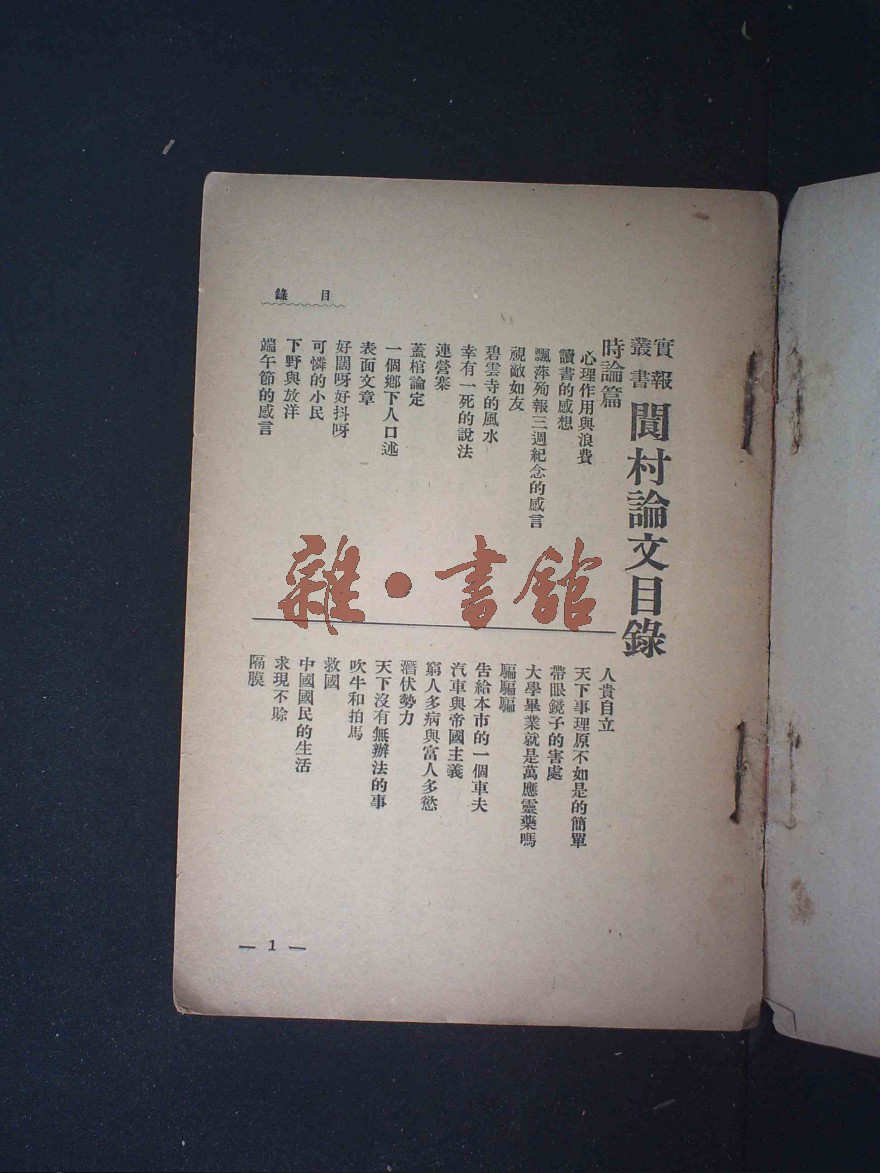 實報叢書
閬村論文目錄
時論篇
心理作用與浪費
讀書的感想
飄萍殉報三週紀念的感言
視敵如友
碧雲寺的風水
幸有一死的說法
連營寨
蓋棺論定
一個鄉下人口述
表面文章
好闊呀好抖呀
可憐的小民
下野與放洋
端午節的感言
人貴自立
天下事理原不如是的簡單
帶眼鏡子的害處
大學畢業就是萬應靈藥嗎
騙騙騙
告給本市的一個車夫
汽車與帝國主義
窮人多病與富人多慾
潛伏勢力
天下沒有無辦法的事
吹牛和拍馬
救國
中國國民的生活
求現不賒
隔膜
目錄
— 1 —
雜·書館